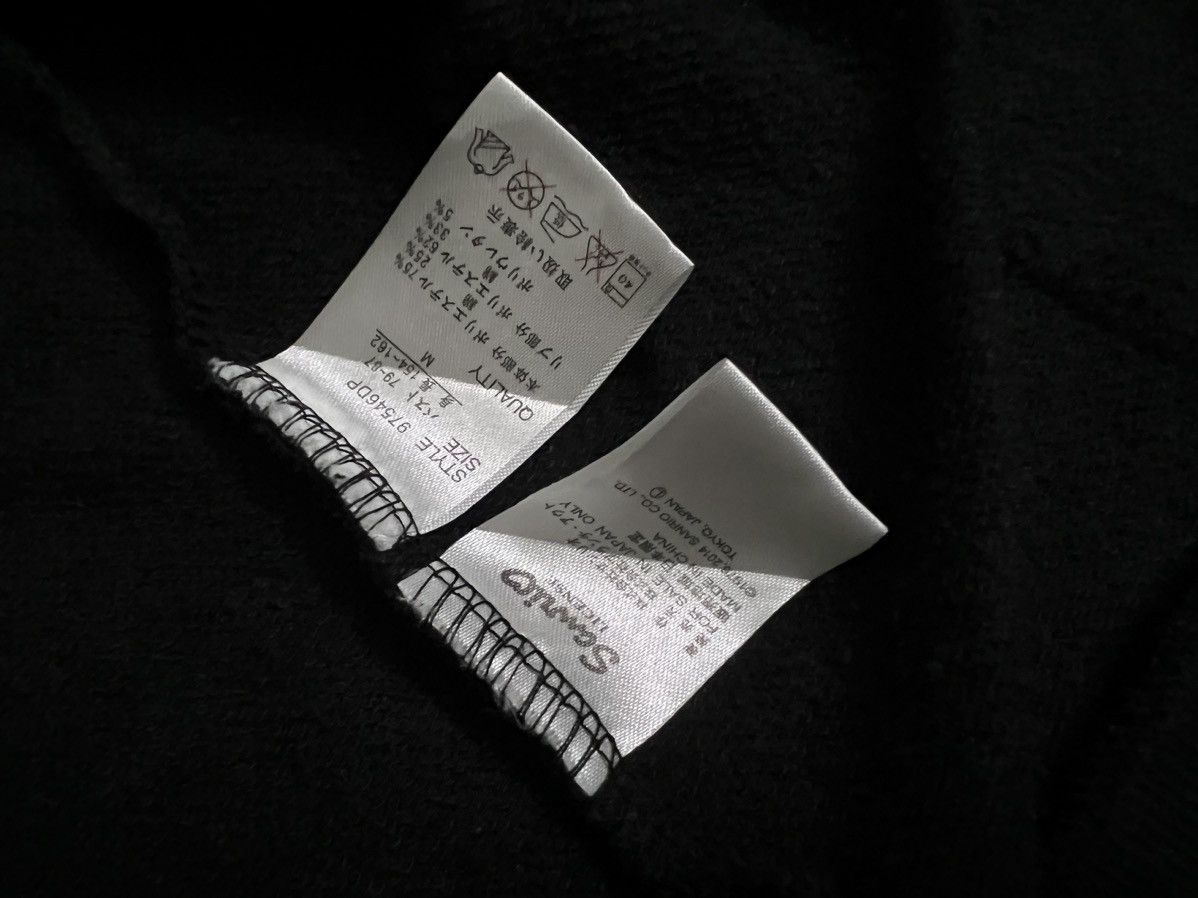 STYLE 97546DP
SIZE
バスト 79~87
身長 154~162
M
QUALITY
本体部分 ポリエステル 75%
綿 25%
リブ部分 ポリエステル 62%
綿 33%
ポリウレタン 5%
取扱い絵表示
40
低
Sanrio
LICENSE
株式会社
販売地域 日本限定
FOR SALE IN JAPAN ONLY
MADE IN CHINA
©1976, 2014 SANRIO CO., LTD.
TOKYO, JAPAN Ⓛ